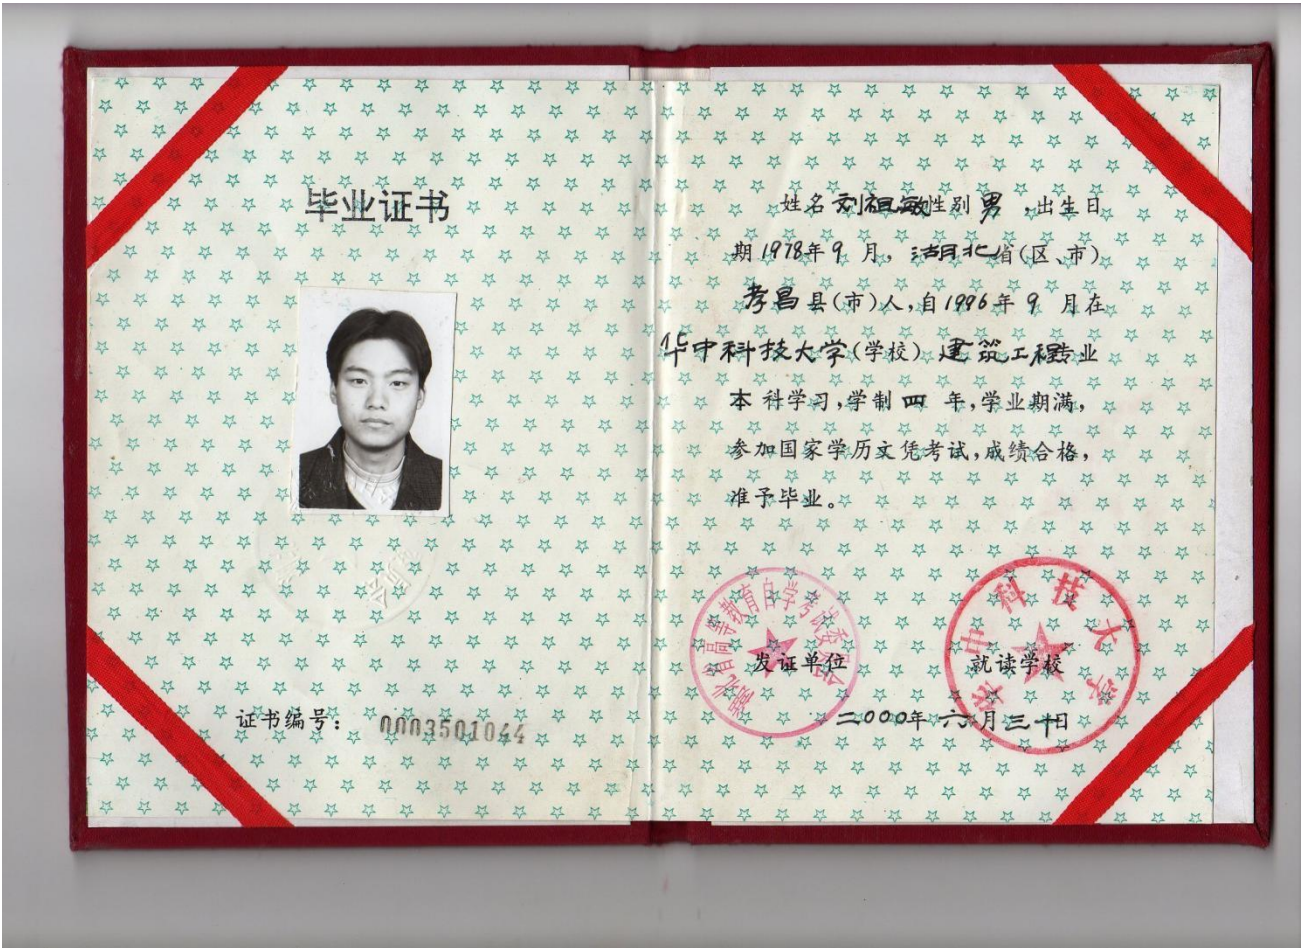 毕业证书
证书编号： 0003501044
姓名刘祖敏性别男，出生日
期1978年9月，湖北省(区、市)
孝昌县(市)人，自1996年9月在
华中科技大学(学校)建筑工程专业
本科学习，学制四年，学业期满，
参加国家学历文凭考试，成绩合格，
准予毕业。
湖北省高等教育自学考试委员会
发证单位
华中科技大学
就读学校
二000年六月三十日